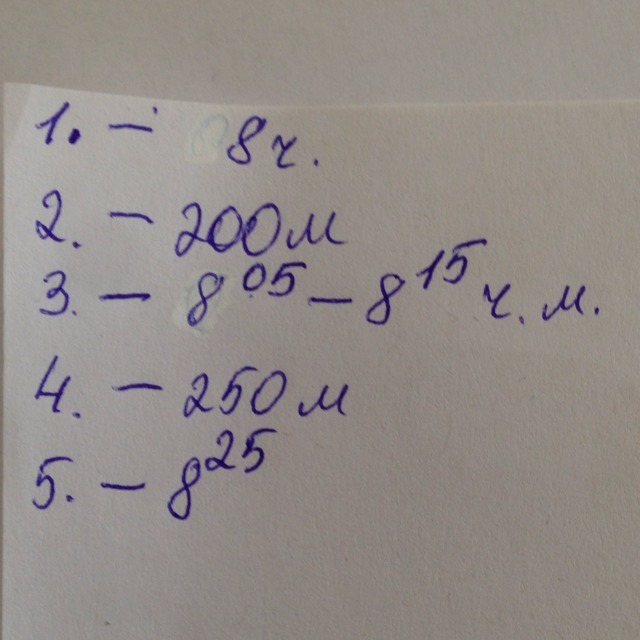 1. – 8ч.
2. – 200м
3. – 8⁰⁵ – 8¹⁵ ч. м.
4. – 250м
5. – 8²⁵